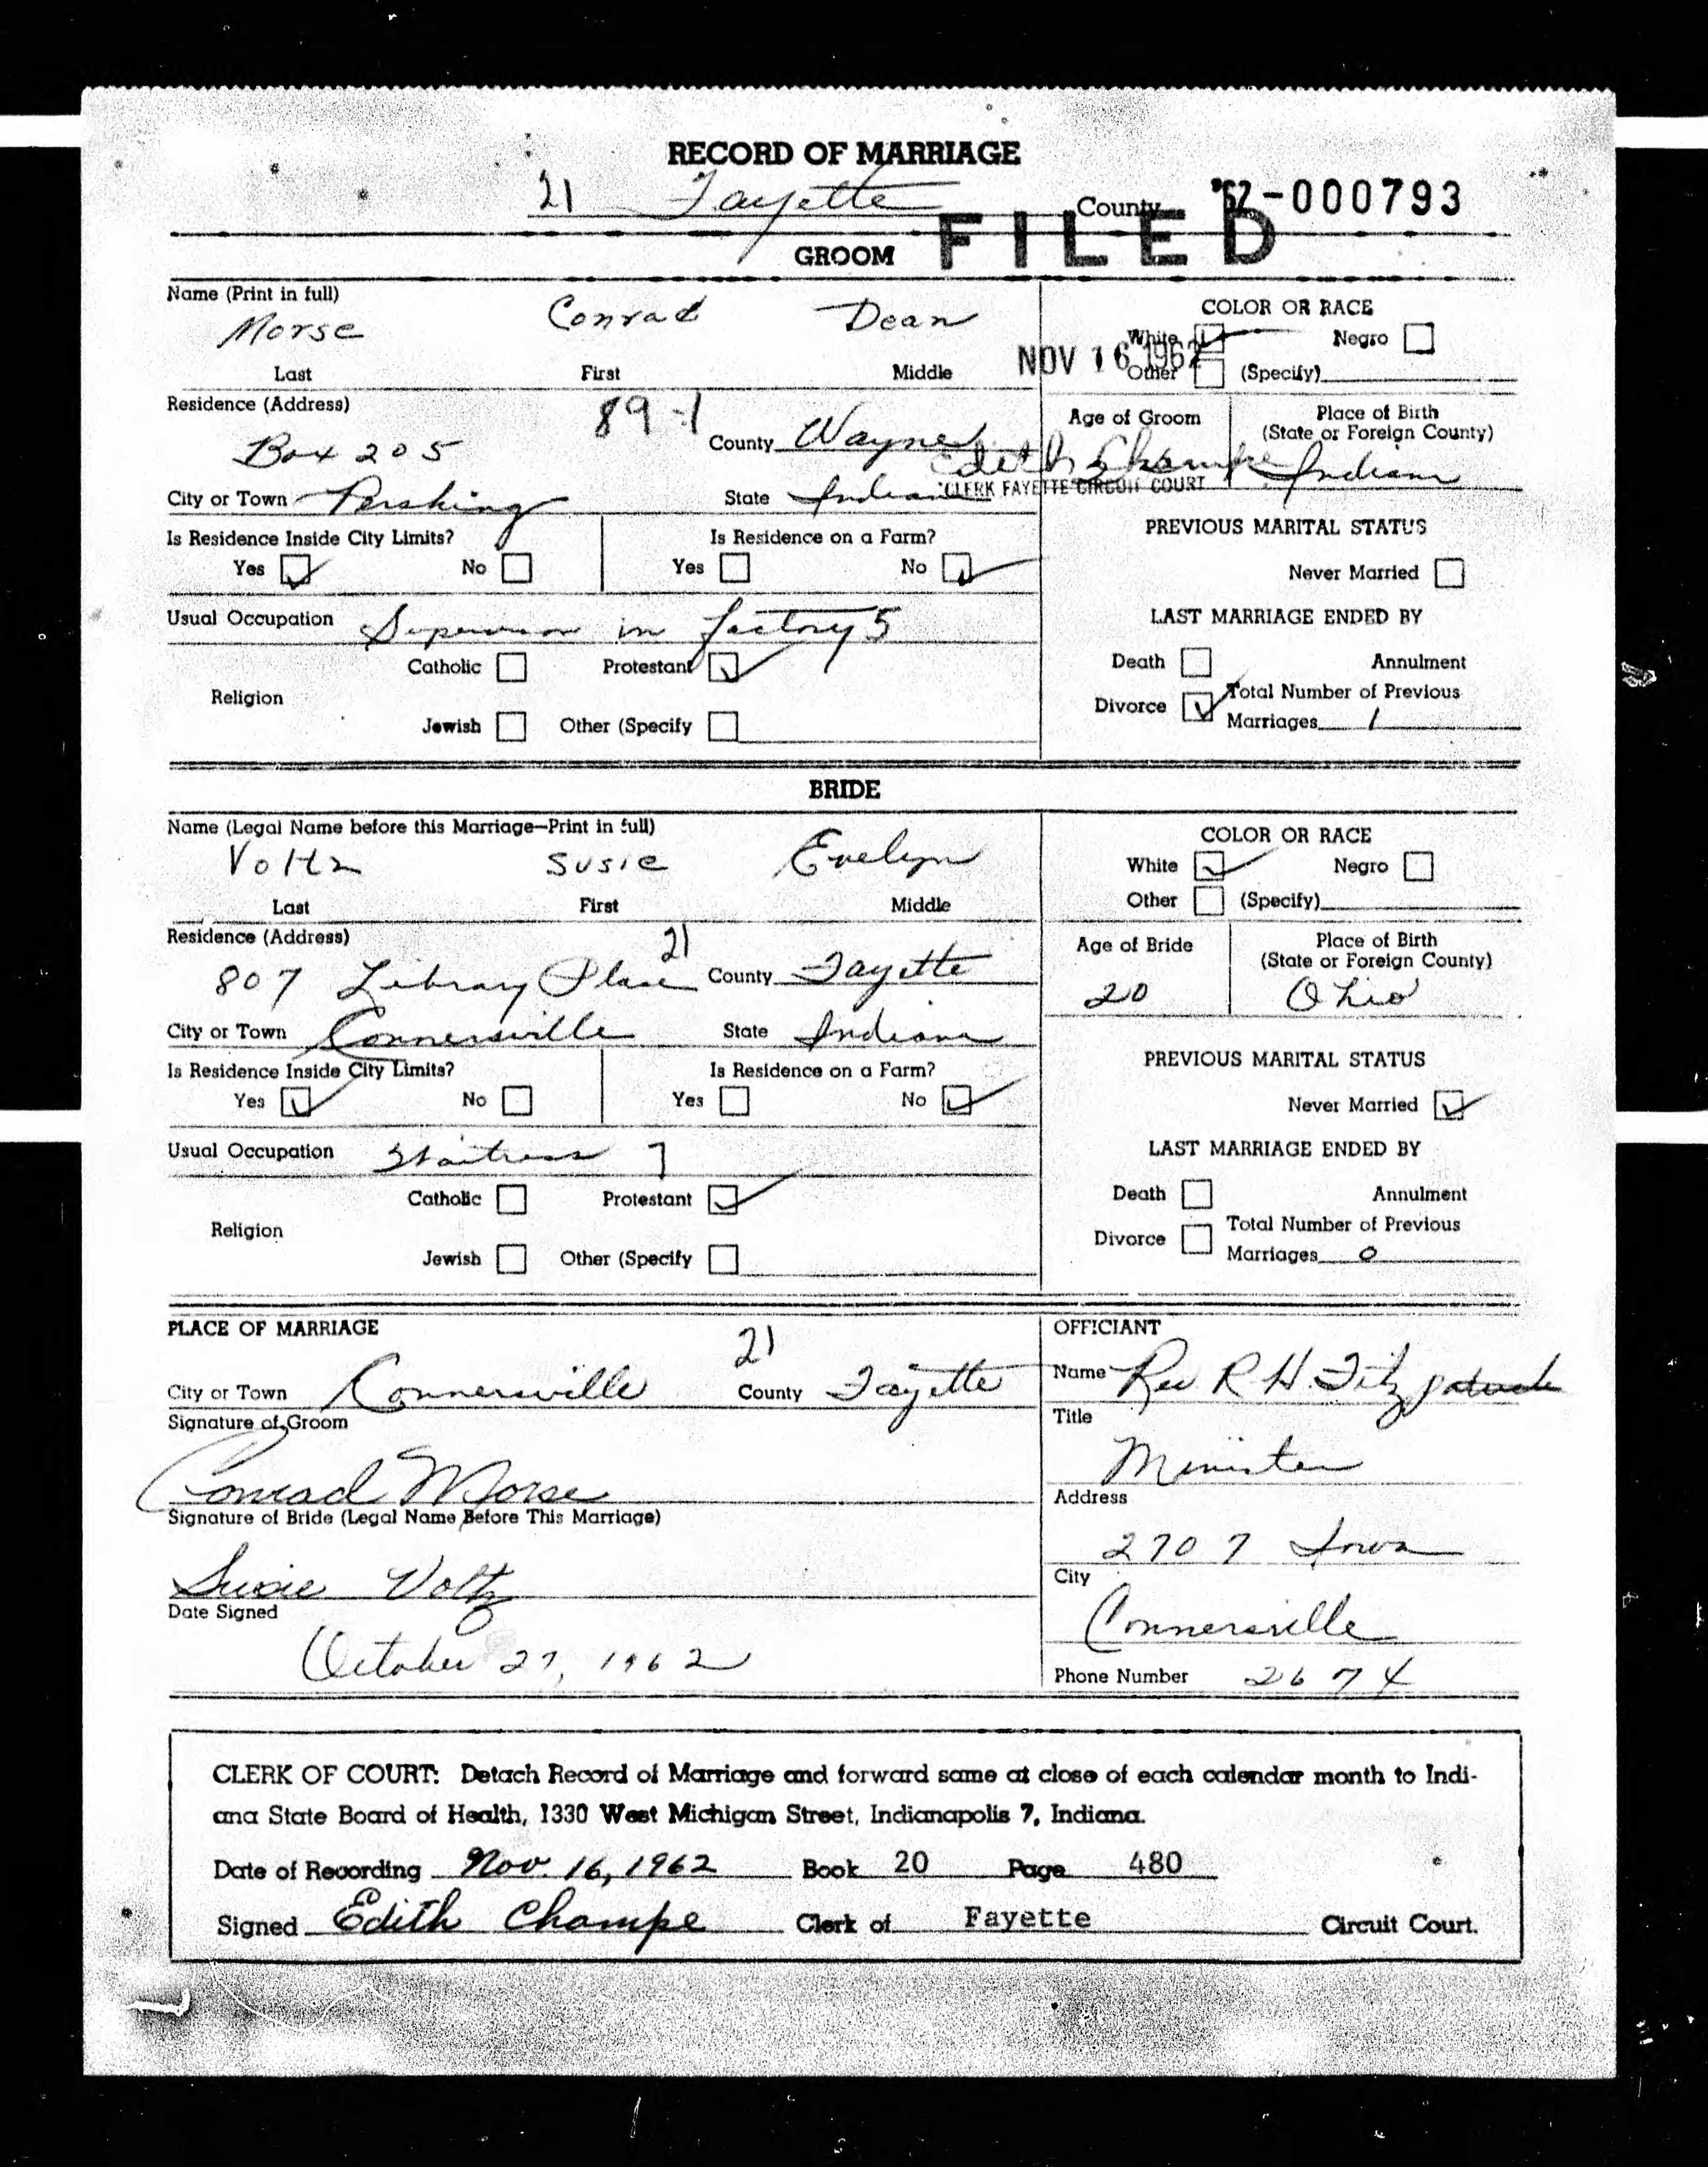 RECORD OF MARRIAGE
21 Fayette County '62-000793
FILED
GROOM
Name (Print in full)
Morse Conrad Dean
Last First Middle
COLOR OR RACE
White Negro
Other (Specify)
NOV 16 1962
Residence (Address)
89-1
Box 205 County Wayne
City or Town Pershing State Indiana
Age of Groom
Place of Birth
(State or Foreign County)
Indiana
Edith Champe
CLERK FAYETTE CIRCUIT COURT
Is Residence Inside City Limits? Is Residence on a Farm?
Yes No Yes No
PREVIOUS MARITAL STATUS
Never Married
Usual Occupation Supervisor in factory 5
LAST MARRIAGE ENDED BY
Catholic Protestant
Religion
Jewish Other (Specify
Death Annulment
Divorce Total Number of Previous
Marriages 1
BRIDE
Name (Legal Name before this Marriage—Print in full)
Voltz Susie Evelyn
Last First Middle
COLOR OR RACE
White Negro
Other (Specify)
Residence (Address)
21
807 Library Place County Fayette
City or Town Connersville State Indiana
Age of Bride
20
Place of Birth
(State or Foreign County)
Ohio
Is Residence Inside City Limits? Is Residence on a Farm?
Yes No Yes No
PREVIOUS MARITAL STATUS
Never Married
Usual Occupation Waitress 7
LAST MARRIAGE ENDED BY
Catholic Protestant
Religion
Jewish Other (Specify
Death Annulment
Divorce Total Number of Previous
Marriages 0
PLACE OF MARRIAGE
21
City or Town Connersville County Fayette
Signature of Groom
Conrad Morse
Signature of Bride (Legal Name Before This Marriage)
Susie Voltz
Date Signed
October 27, 1962
OFFICIANT
Name Rev R H. Fitzpatrick
Title
Minister
Address
2707 Iowa
City
Connersville
Phone Number 2674
CLERK OF COURT: Detach Record of Marriage and forward same at close of each calendar month to Indi-
ana State Board of Health, 1330 West Michigan Street, Indianapolis 7, Indiana.
Date of Recording Nov. 16, 1962 Book 20 Page 480
Signed Edith Champe Clerk of Fayette Circuit Court.